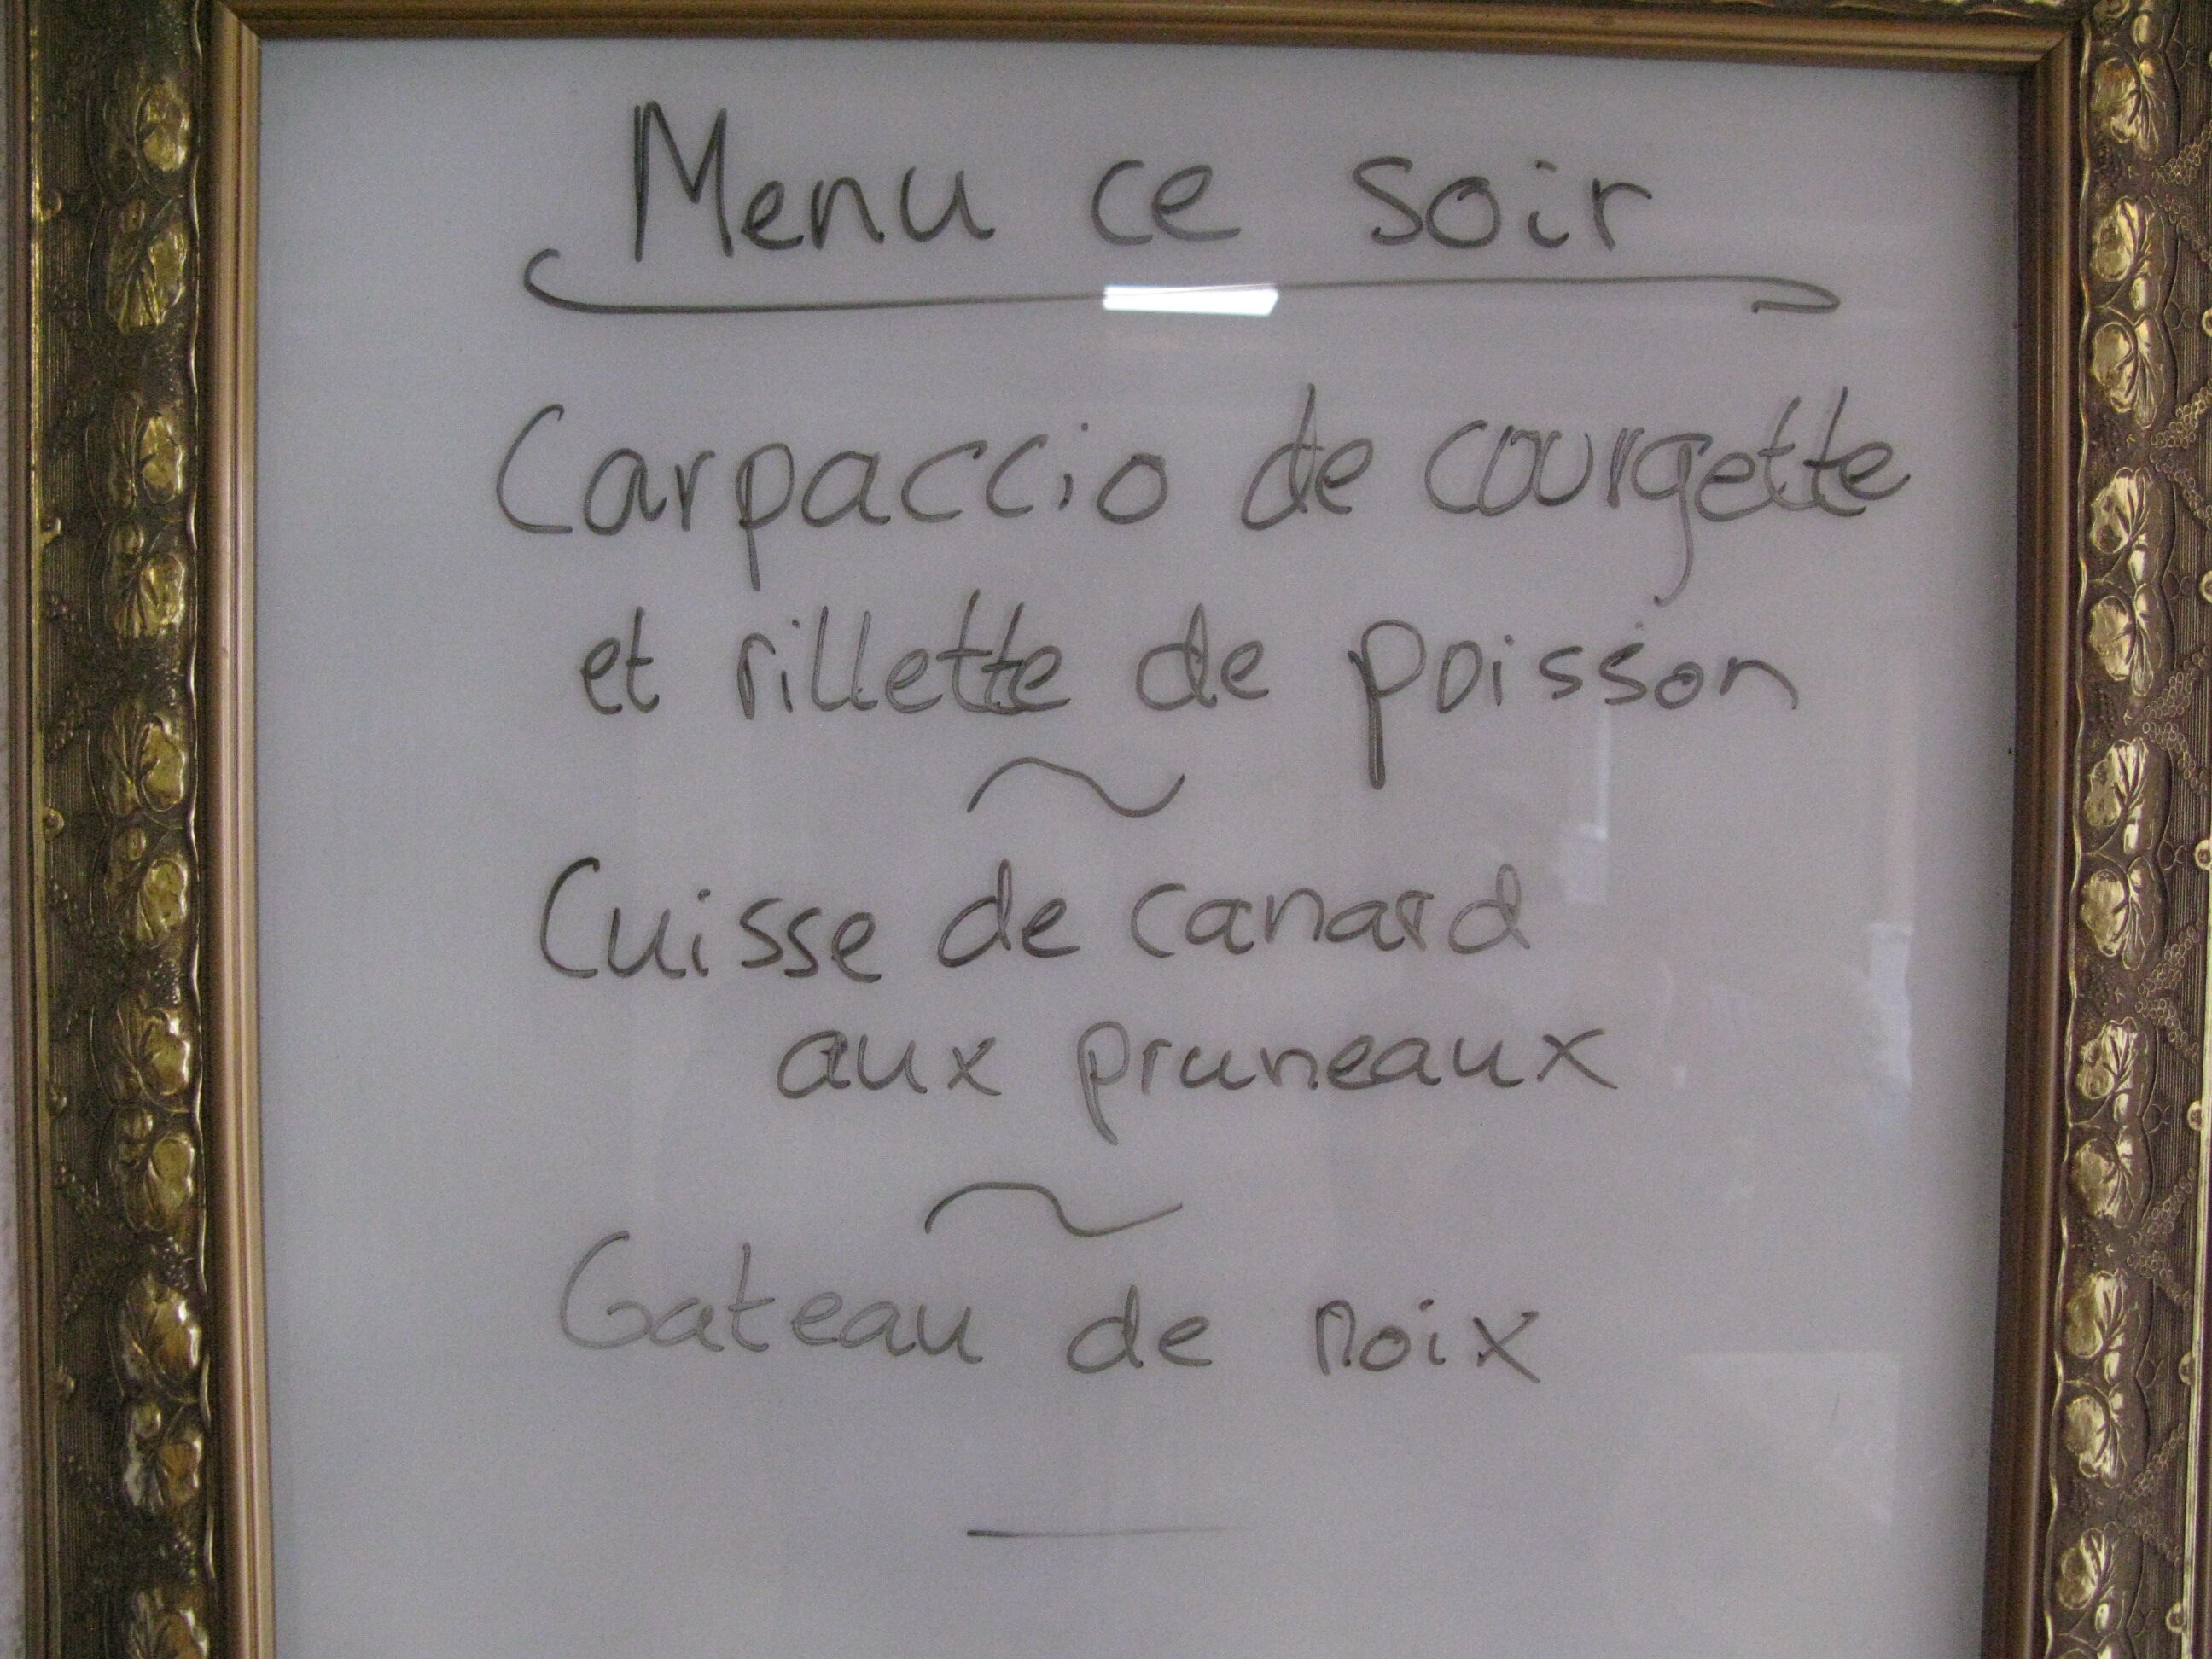 Menu ce soir
Carpaccio de courgette
et rillette de poisson
~
Cuisse de canard
aux pruneaux
~
Gateau de noix